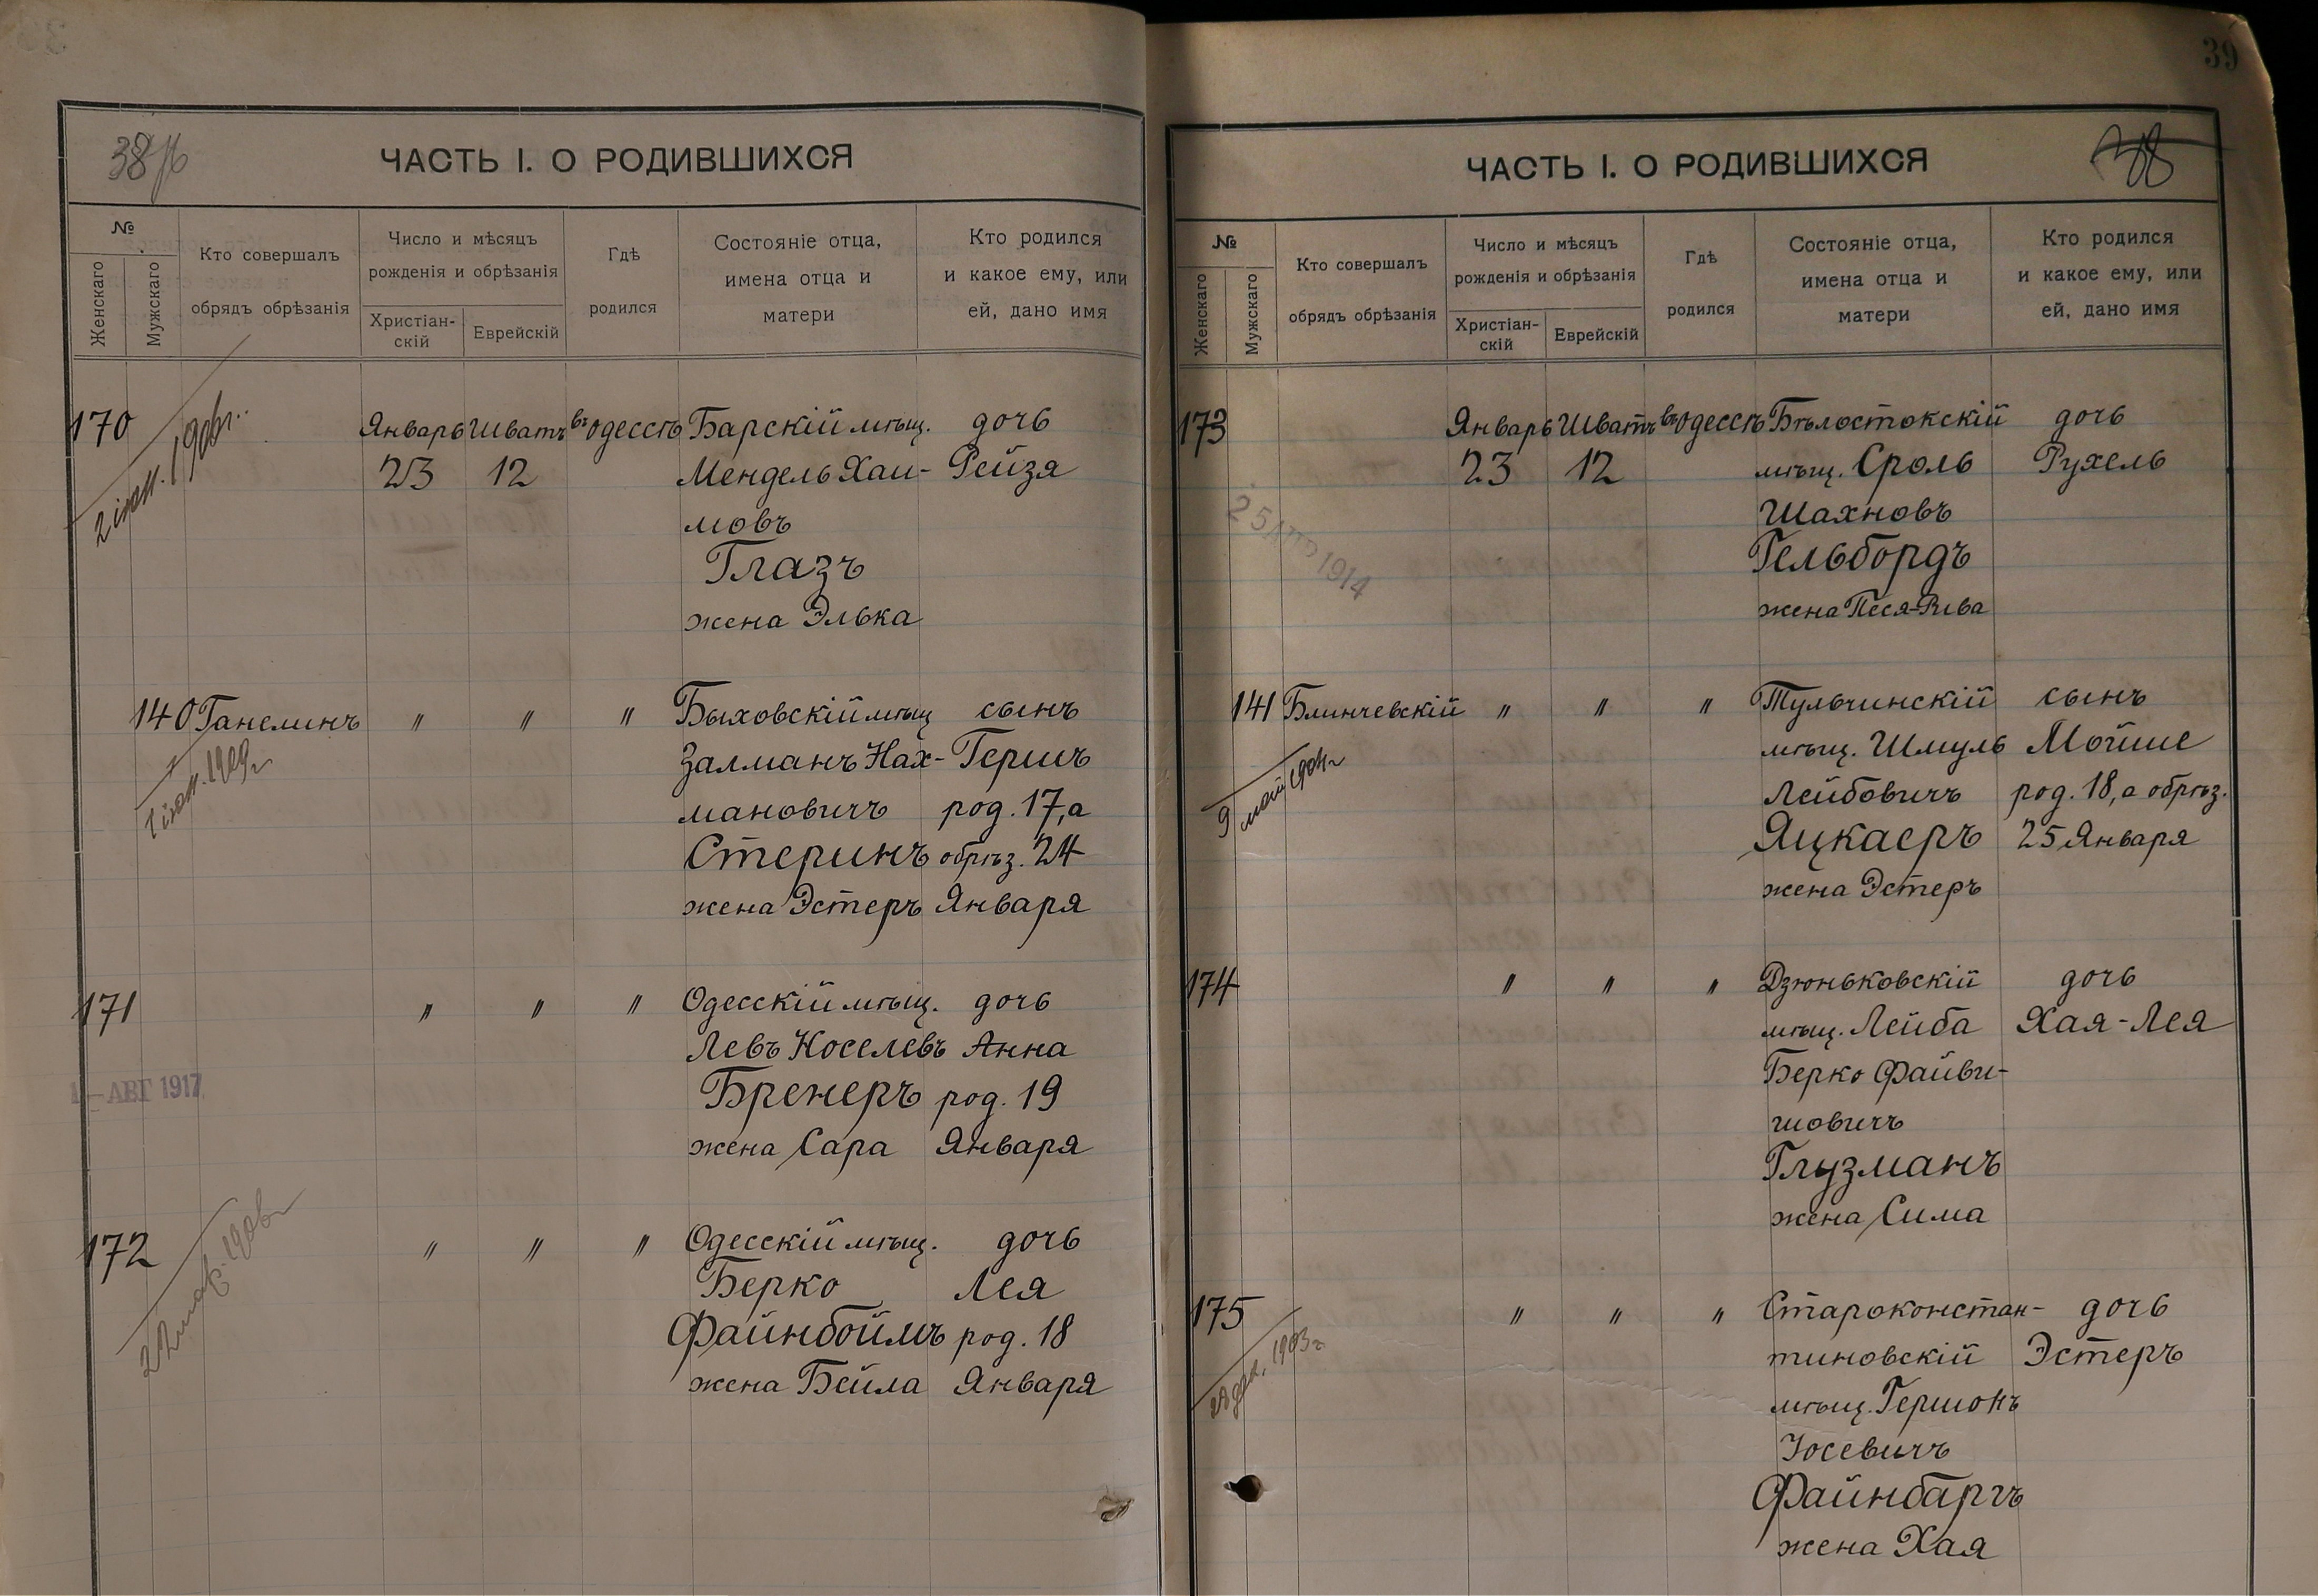 38
ЧАСТЬ I. О РОДИВШИХСЯ
№
Женскаго
Мужскаго
Кто совершалъ
обрядъ обрѣзанія
Число и мѣсяцъ
рожденія и обрѣзанія
Христіан-
скій
Еврейскій
Гдѣ
родился
Состояніе отца,
имена отца и
матери
Кто родился
и какое ему, или
ей, дано имя
170 Январь Шватъ въ Одессѣ Барскій мѣщ. дочь
23 12 Мендель Хаи- Рейзя
мовъ
Глазъ
жена Элька
140 Ганелинъ " " " Быховскій мѣщ сынъ
Залманъ Нах- Гершъ
мановичъ род. 17, а
Стеринъ обрѣз. 24
жена Эстеръ Января
171 " " " Одесскій мѣщ. дочь
Левъ Іоселевъ Анна
Бренеръ род. 19
жена Сара Января
АВГ 1917
172 " " " Одесскій мѣщ. дочь
Берко Лея
Файнбоймъ род. 18
жена Бейла Января
39
ЧАСТЬ I. О РОДИВШИХСЯ
38
№
Женскаго
Мужскаго
Кто совершалъ
обрядъ обрѣзанія
Число и мѣсяцъ
рожденія и обрѣзанія
Христіан-
скій
Еврейскій
Гдѣ
родился
Состояніе отца,
имена отца и
матери
Кто родился
и какое ему, или
ей, дано имя
173 Январь Шватъ въ Одессѣ Бѣлостокскій дочь
23 12 мѣщ. Сроль Рухель
Шахновъ
Гельбордъ
жена Песя-Рива
25 1914
141 Блинчевскій " " " Тульчинскій сынъ
мѣщ. Шмуль Мойше
Лейбовичъ род. 18, а обрѣз.
Яцкаеръ 25 Января
жена Эстеръ
9 май 1904 г
174 " " " Дзюньковскій дочь
мѣщ. Лейба Хая-Лея
Берко Файви-
шовичъ
Глузманъ
жена Сима
175 " " " Староконстан- дочь
тиновскій Эстеръ
мѣщ. Гершонъ
Іосевичъ
Файнбаргъ
жена Хая